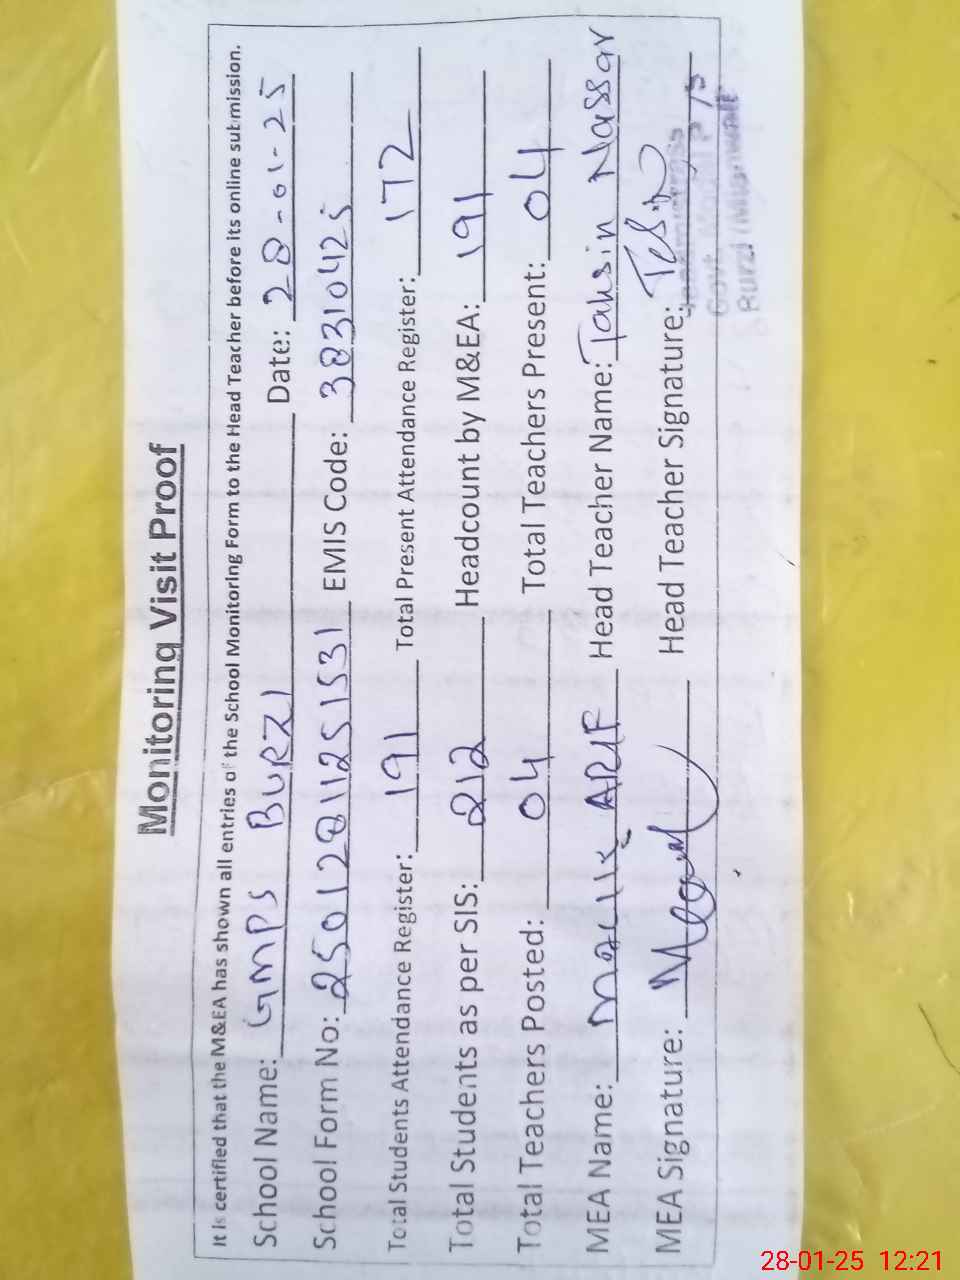 Monitoring Visit Proof
It is certified that the M&EA has shown all entries of the School Monitoring Form to the Head Teacher before its online submission.
School Name: GMPS BURZI Date: 28-01-25
School Form No: 25012811251531 EMIS Code: 38310425
Total Students Attendance Register: 191 Total Present Attendance Register: 172
Total Students as per SIS: 212 Headcount by M&EA: 191
Total Teachers Posted: 04 Total Teachers Present: 04
MEA Name: Malik ARIF Head Teacher Name: Tahsin Nassar
MEA Signature: Head Teacher Signature:
Headmistress
Govt. Model P/S
Burzi (Mianwali)
28-01-25 12:21